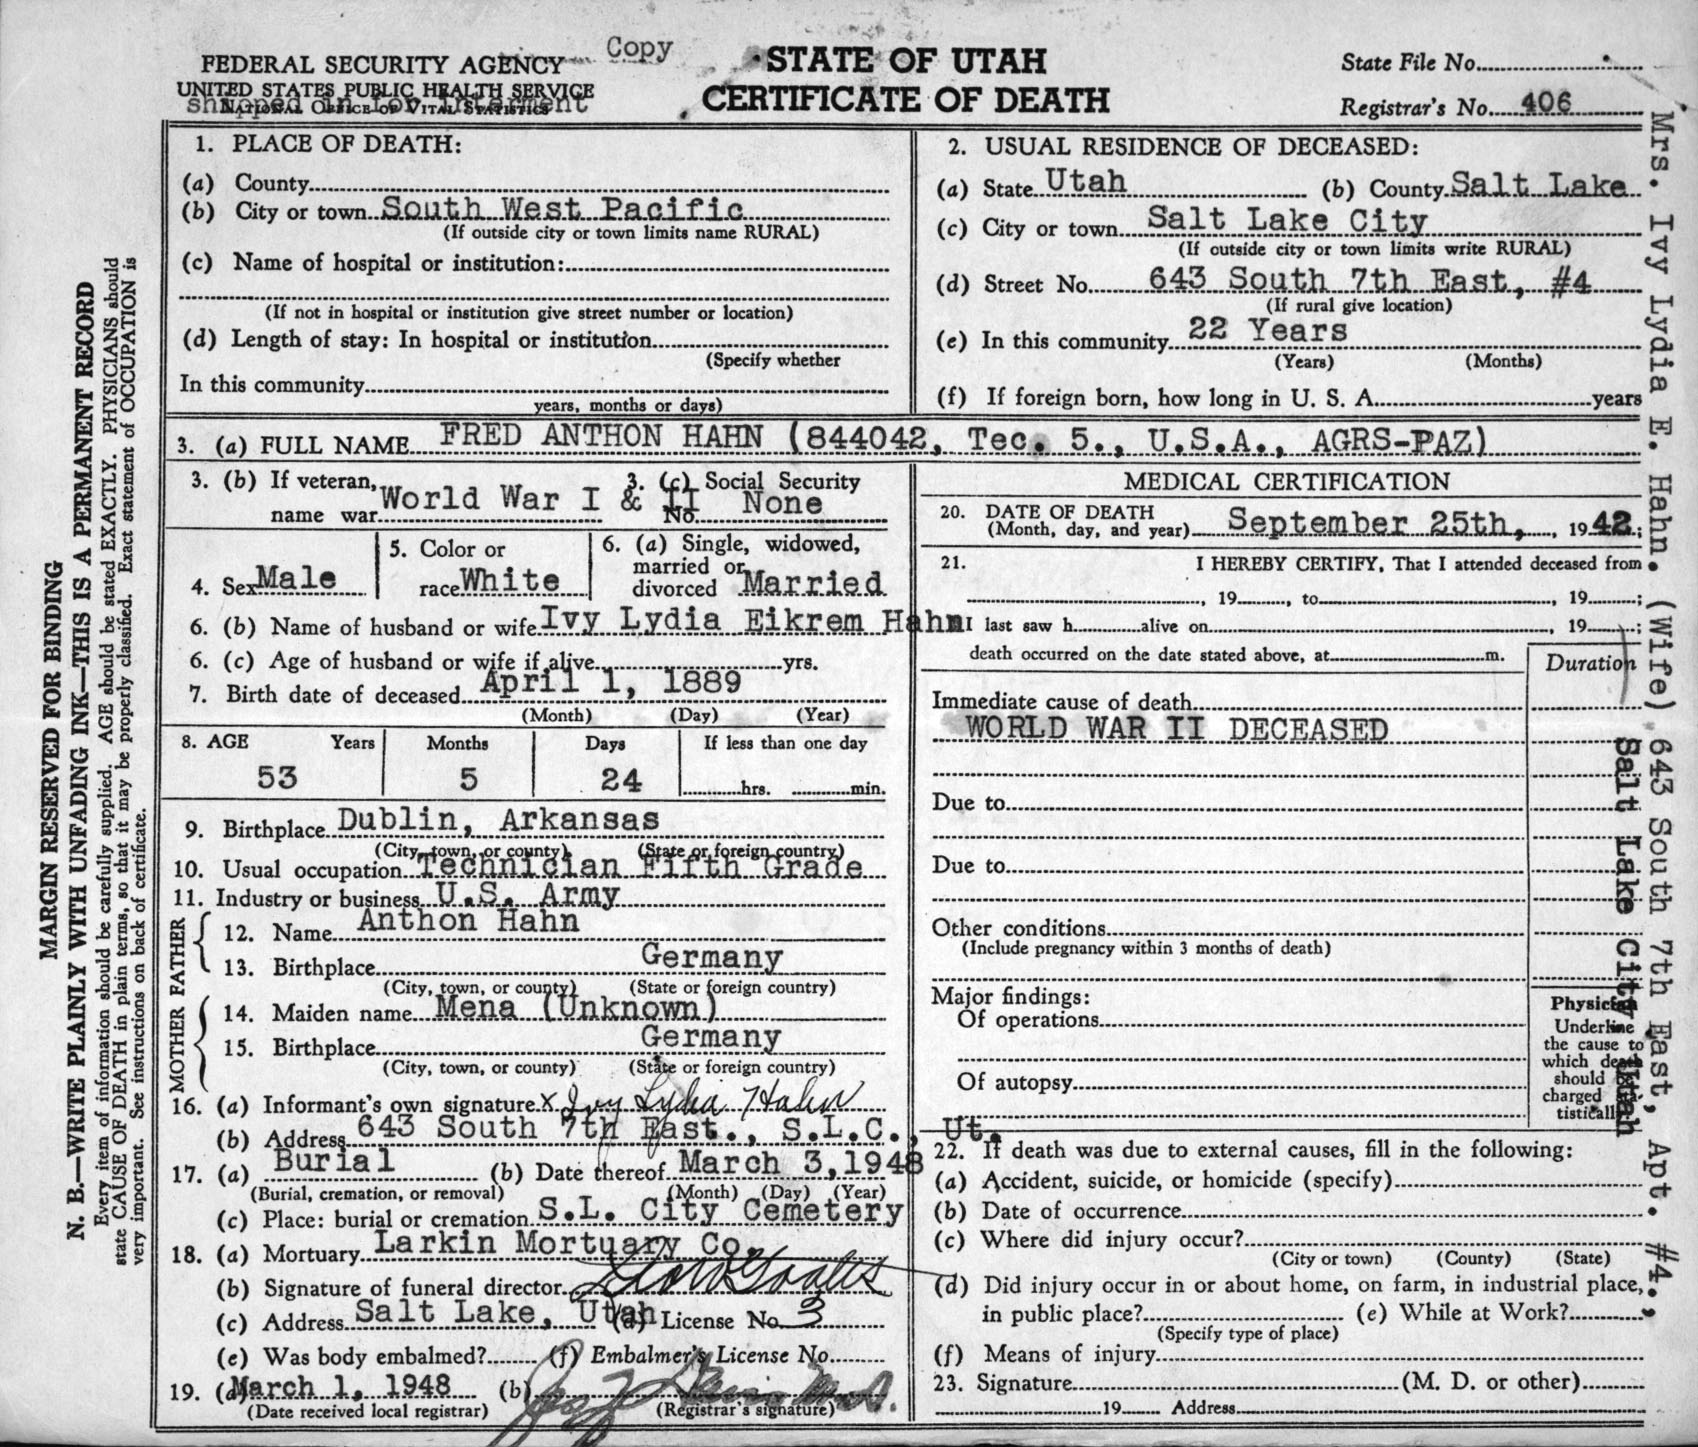 Copy
FEDERAL SECURITY AGENCY
UNITED STATES PUBLIC HEALTH SERVICE
NATIONAL OFFICE OF VITAL STATISTICS
shipped in for Interment
STATE OF UTAH
CERTIFICATE OF DEATH
State File No.
Registrar's No. 406
MARGIN RESERVED FOR BINDING
N. B.—WRITE PLAINLY WITH UNFADING INK—THIS IS A PERMANENT RECORD
Every item of information should be carefully supplied. AGE should be stated EXACTLY. PHYSICIANS should
state CAUSE OF DEATH in plain terms, so that it may be properly classified. Exact statement of OCCUPATION is
very important. See instructions on back of certificate.
1. PLACE OF DEATH:
(a) County
(b) City or town South West Pacific
(If outside city or town limits name RURAL)
(c) Name of hospital or institution:
(If not in hospital or institution give street number or location)
(d) Length of stay: In hospital or institution
(Specify whether
In this community
years, months or days)
2. USUAL RESIDENCE OF DECEASED:
(a) State Utah (b) County Salt Lake
(c) City or town Salt Lake City
(If outside city or town limits write RURAL)
(d) Street No. 643 South 7th East, #4
(If rural give location)
(e) In this community 22 Years
(Years) (Months)
(f) If foreign born, how long in U. S. A. years
3. (a) FULL NAME FRED ANTHON HAHN (844042, Tec. 5., U.S.A., AGRS-PAZ)
3. (b) If veteran, name war World War I & II
3. (c) Social Security No. None
4. Sex Male
5. Color or race White
6. (a) Single, widowed, married or divorced Married
6. (b) Name of husband or wife Ivy Lydia Eikrem Hahn
6. (c) Age of husband or wife if alive yrs.
7. Birth date of deceased April 1, 1889
(Month) (Day) (Year)
8. AGE Years Months Days If less than one day
53 5 24 hrs. min.
9. Birthplace Dublin, Arkansas
(City, town, or county) (State or foreign country)
10. Usual occupation Technician Fifth Grade
11. Industry or business U.S. Army
FATHER
12. Name Anthon Hahn
13. Birthplace Germany
(City, town, or county) (State or foreign country)
MOTHER
14. Maiden name Mena (Unknown)
15. Birthplace Germany
(City, town, or county) (State or foreign country)
16. (a) Informant's own signature x Ivy Lydia Hahn
(b) Address 643 South 7th East., S.L.C., Ut.
17. (a) Burial (b) Date thereof March 3, 1948
(Burial, cremation, or removal) (Month) (Day) (Year)
(c) Place: burial or cremation S.L. City Cemetery
18. (a) Mortuary Larkin Mortuary Co.
(b) Signature of funeral director
(c) Address Salt Lake, Utah (d) License No. 3
(e) Was body embalmed? (f) Embalmer's License No.
19. (a) March 1, 1948 (b)
(Date received local registrar) (Registrar's signature)
MEDICAL CERTIFICATION
20. DATE OF DEATH
(Month, day, and year) September 25th, , 1942;
21. I HEREBY CERTIFY, That I attended deceased from
, 19 , to , 19 ;
I last saw h alive on , 19 ;
death occurred on the date stated above, at m.
Duration
Immediate cause of death
WORLD WAR II DECEASED
Due to
Due to
Other conditions
(Include pregnancy within 3 months of death)
Major findings:
Of operations
Of autopsy
Physician
Underline
the cause to
which death
should be
charged sta-
tistically
22. If death was due to external causes, fill in the following:
(a) Accident, suicide, or homicide (specify)
(b) Date of occurrence
(c) Where did injury occur?
(City or town) (County) (State)
(d) Did injury occur in or about home, on farm, in industrial place,
in public place? (e) While at Work?
(Specify type of place)
(f) Means of injury
23. Signature (M. D. or other)
19 Address
Mrs. Ivy Lydia E. Hahn. (Wife) 643 South 7th East, Apt. #4.,
Salt Lake City Utah